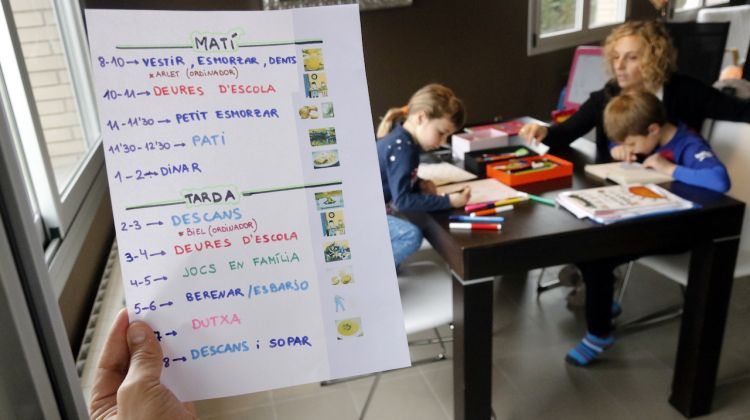 MATÍ
8-10→ VESTIR, ESMORZAR, DENTS
* ARLET (ORDINADOR)
10-11→ DEURES D'ESCOLA
11-11'30→ PETIT ESMORZAR
11'30-12'30→ PATI
1-2→ DINAR
TARDA
2-3→ DESCANS
* BIEL (ORDINADOR)
3-4→ DEURES D'ESCOLA
4-5→ JOCS EN FAMÍLIA
5-6→ BERENAR/ESBARJO
7→ DUTXA
8→ DESCANS i SOPAR